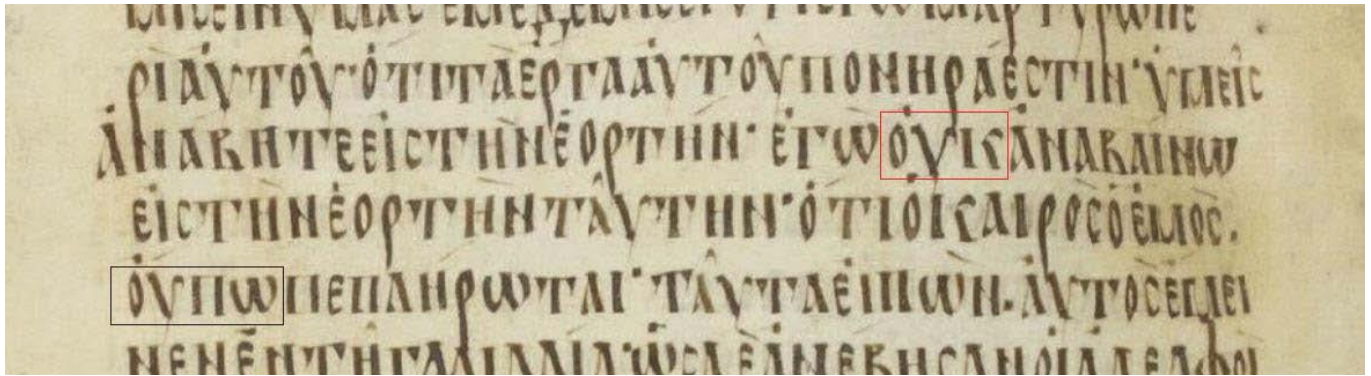 ΡΙΑΥΤΟΥ·ΟΤΙΤΑΕΡΓΑΑΥΤΟΥΠΟΝΗΡΑΕϹΤΙΝ·ΥΜΕΙϹ
ΑΝΑΒΗΤΕΕΙϹΤΗΝΕΟΡΤΗΝ·ΕΓΩΟΥΚΑΝΑΒΑΙΝΩ
ΕΙϹΤΗΝΕΟΡΤΗΝΤΑΥΤΗΝ·ΟΤΙΟΚΑΙΡΟϹΟΕΜΟϹ.
ΟΥΠΩΠΕΠΛΗΡΩΤΑΙ·ΤΑΥΤΑΕΙΠΩΝ.ΑΥΤΟϹΕΜΕΙ
ΝΕΝΕΝΤΗΓΑΛΙΛΑΙΑ·ΩϹΔΕΑΝΕΒΗϹΑΝΟΙΑΔΕΛΦΟΙ